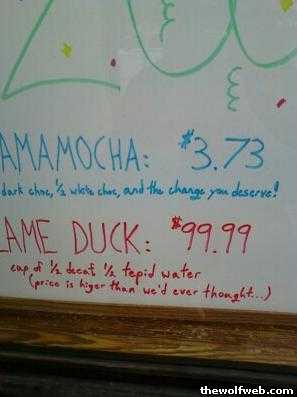 AMAMOCHA: $3.73
dark choc, 1/2 white choc, and the change you deserve!
LAME DUCK: $99.99
cup of 1/2 decaf 1/2 tepid water
(price is higer than we'd ever thought...)
thewolfweb.com